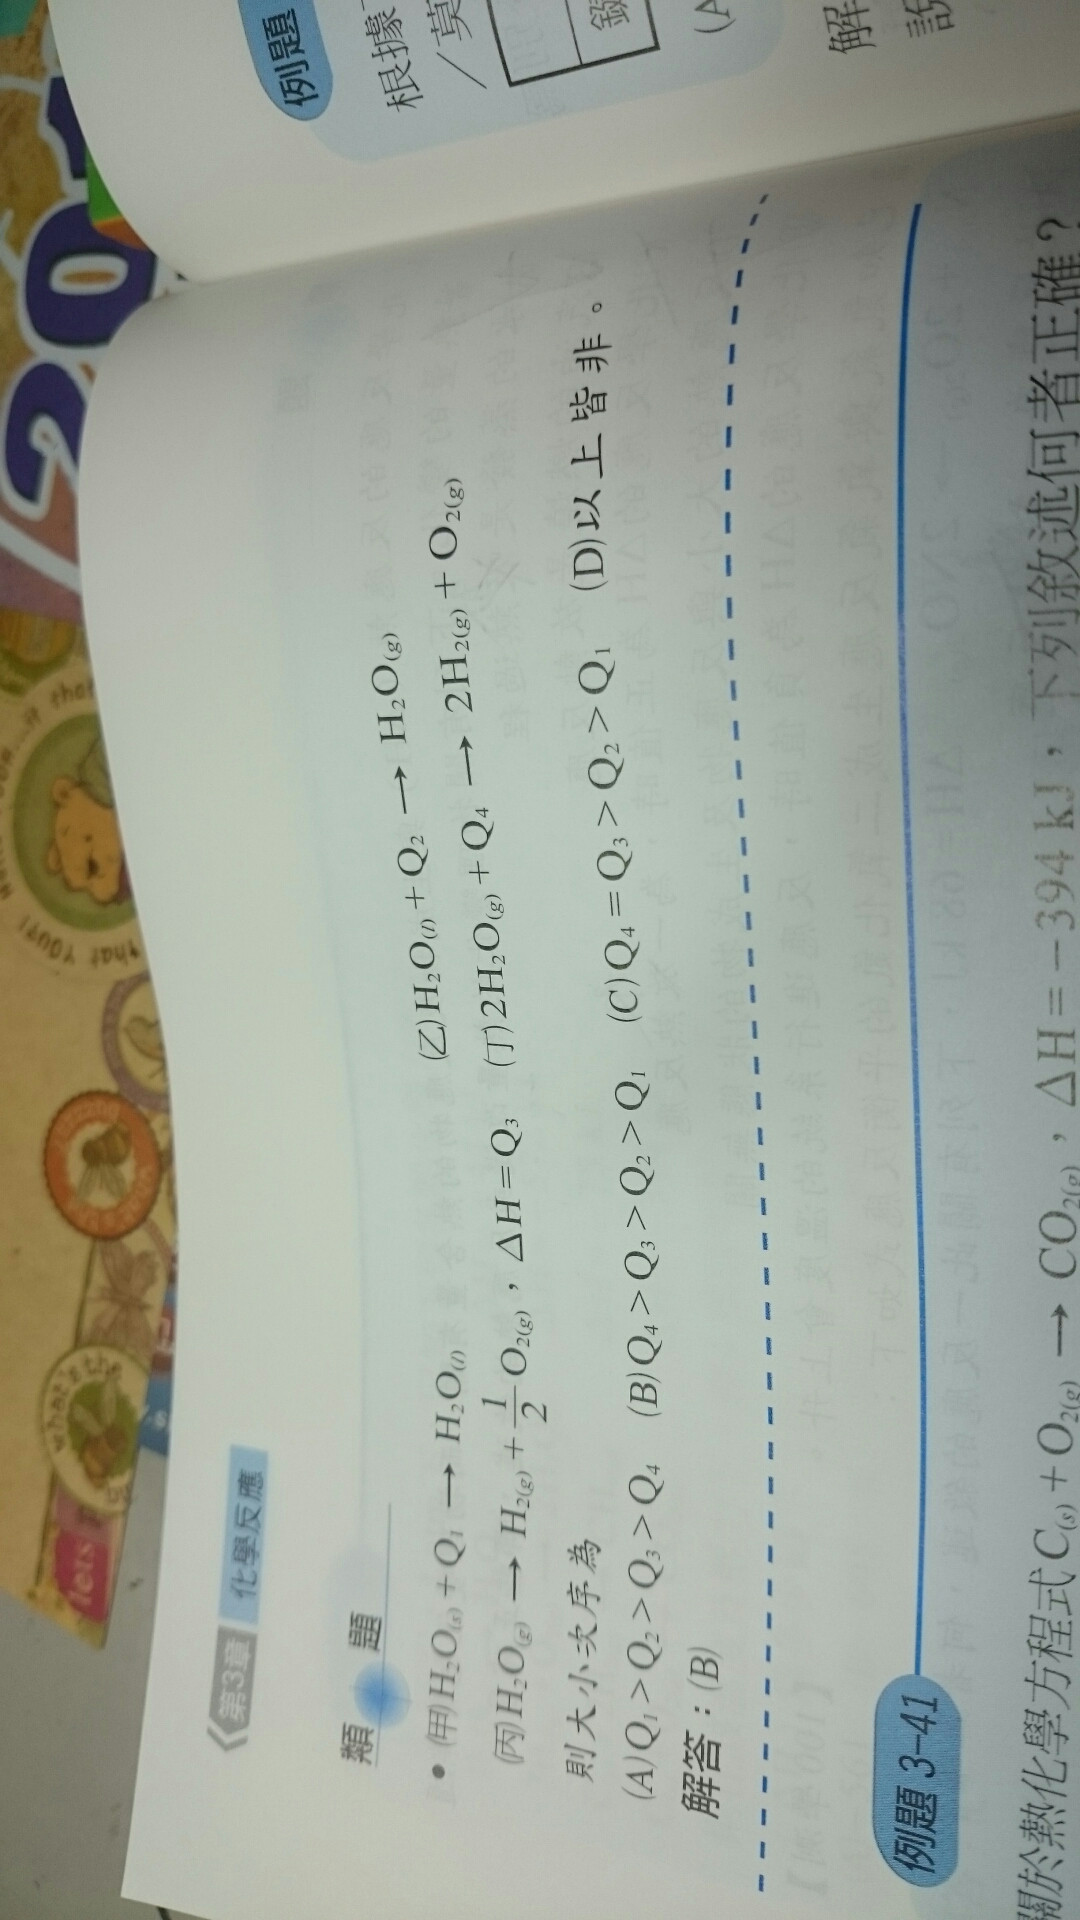 第3章 化學反應
類題
● (甲)H₂O₍ₛ₎+Q₁ → H₂O₍ₗ₎ (乙)H₂O₍ₗ₎+Q₂ → H₂O₍g₎
(丙)H₂O₍g₎ → H₂₍g₎+1/2 O₂₍g₎,△H=Q₃ (丁)2H₂O₍g₎+Q₄ → 2H₂₍g₎+O₂₍g₎
則大小次序為
(A)Q₁>Q₂>Q₃>Q₄ (B)Q₄>Q₃>Q₂>Q₁ (C)Q₄=Q₃>Q₂>Q₁ (D)以上皆非。
解答:(B)
例題 3-41
關於熱化學方程式C₍ₛ₎+O₂₍g₎ → CO₂₍g₎,△H=-394 kJ,下列敘述何者正確?
例題
根據
/莫
(A
解
說
20
what's the
lets
that
YOUT!